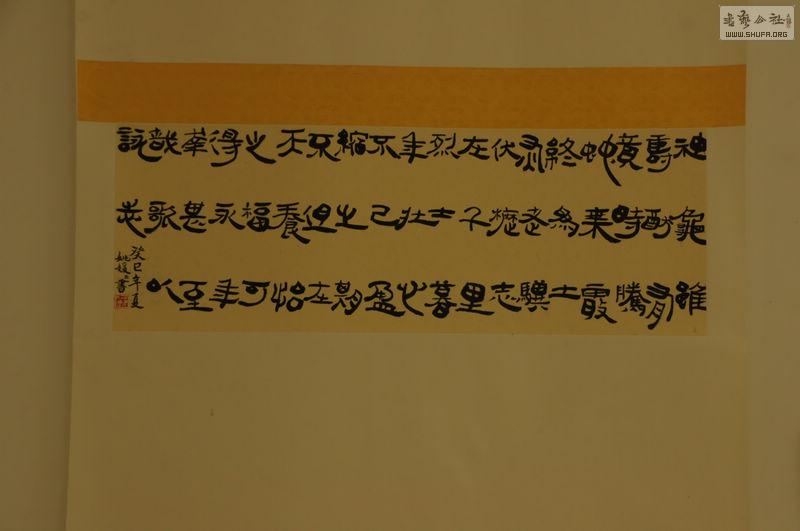 神龜雖
壽猶有
竟時騰
虵乘霧
終為土
灰老驥
伏櫪志
在千里
烈士暮
年壯心
不已盈
縮之期
不但在
天養怡
之福可
得永年
幸甚至
哉歌以
詠志
癸巳年夏
姚媛書
书艺公社
WWW.SHUFA.ORG